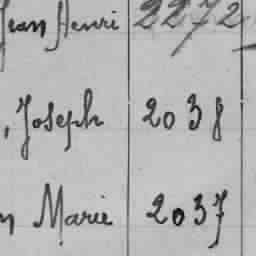 Jean Henri 2272
, Joseph 2038
n Marie 2037